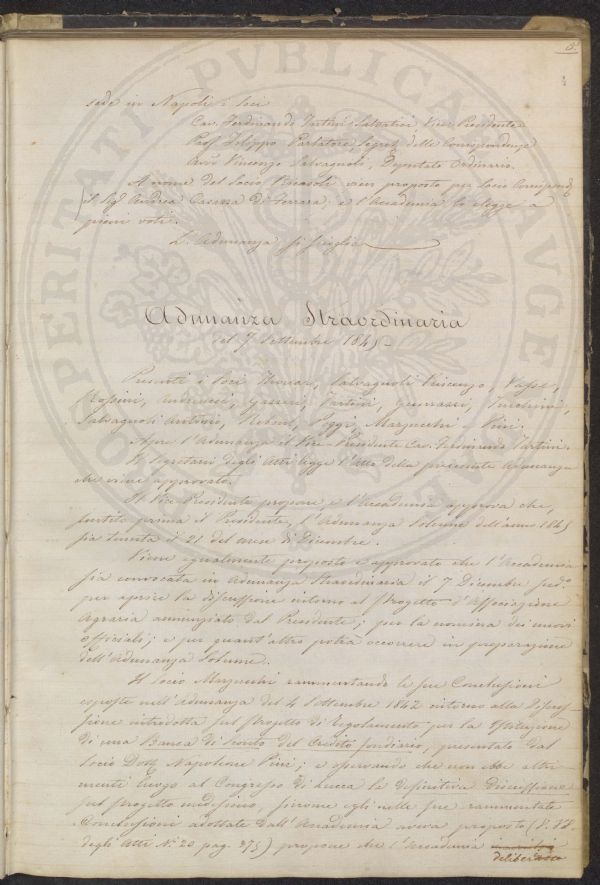 sede in Napoli i Soci
Cav. Ferdinando Tartini Salvatici, Vice Presidente
Prof. Filippo Parlatore, Segret. delle Corrispondenze
Avv. Vincenzo Salvagnoli, Deputato Ordinario.
A nome del Socio Ricasoli vien proposto per Socio Corrispond.
il Sig. Andrea Casazza di Ferrara, e l'Accademia lo elegge a
pieni voti.
L'Adunanza si scioglie
Adunanza Straordinaria
del 7 Settembre 1845
Presenti i Soci Thouar, Salvagnoli Vincenzo,
Rossini, Andreucci, Gazzeri, Tartini,
Salvagnoli Antonio, Poggi, Marzucchi e Pini.
Apre l'Adunanza il Vice Presidente Cav. Ferdinando Tartini.
Il Segretario degli Atti legge l'Atto della precedente Adunanza
che viene approvato.
Il Vice Presidente propone, e l'Accademia approva che,
sentito prima il Presidente, l'Adunanza Solenne dell'anno 1845
sia tenuta il 21 del mese di Dicembre.
Viene egualmente proposto e approvato che l'Accademia
sia convocata in Adunanza Straordinaria il 7 Dicembre sud.°
per aprire la discussione intorno al Progetto d'Associazione
Agraria annunziato dal Presidente; per la nomina dei nuovi
Officiali; e per quant'altro potrà occorrere in preparazione
dell'Adunanza Solenne.
Il Socio Marzucchi rammentando le sue Conclusioni
esposte nell'Adunanza del 4 Settembre 1842 intorno alla Discus-
sione introdotta sul Progetto di Regolamento per la Istituzione
di una Banca di Sconto del Credito fondiario, presentato dal
Socio Dott. Napoleone Pini; e osservando che non ebbe altri-
menti luogo al Congresso di Lucca la definitiva Discussione
sul progetto medesimo, siccome egli nelle sue rammentate
Conclusioni adottate dall'Accademia aveva proposto (V. Vol.
degli Atti N.° 20 pag. 275) propone che l'Accademia
deliberasse